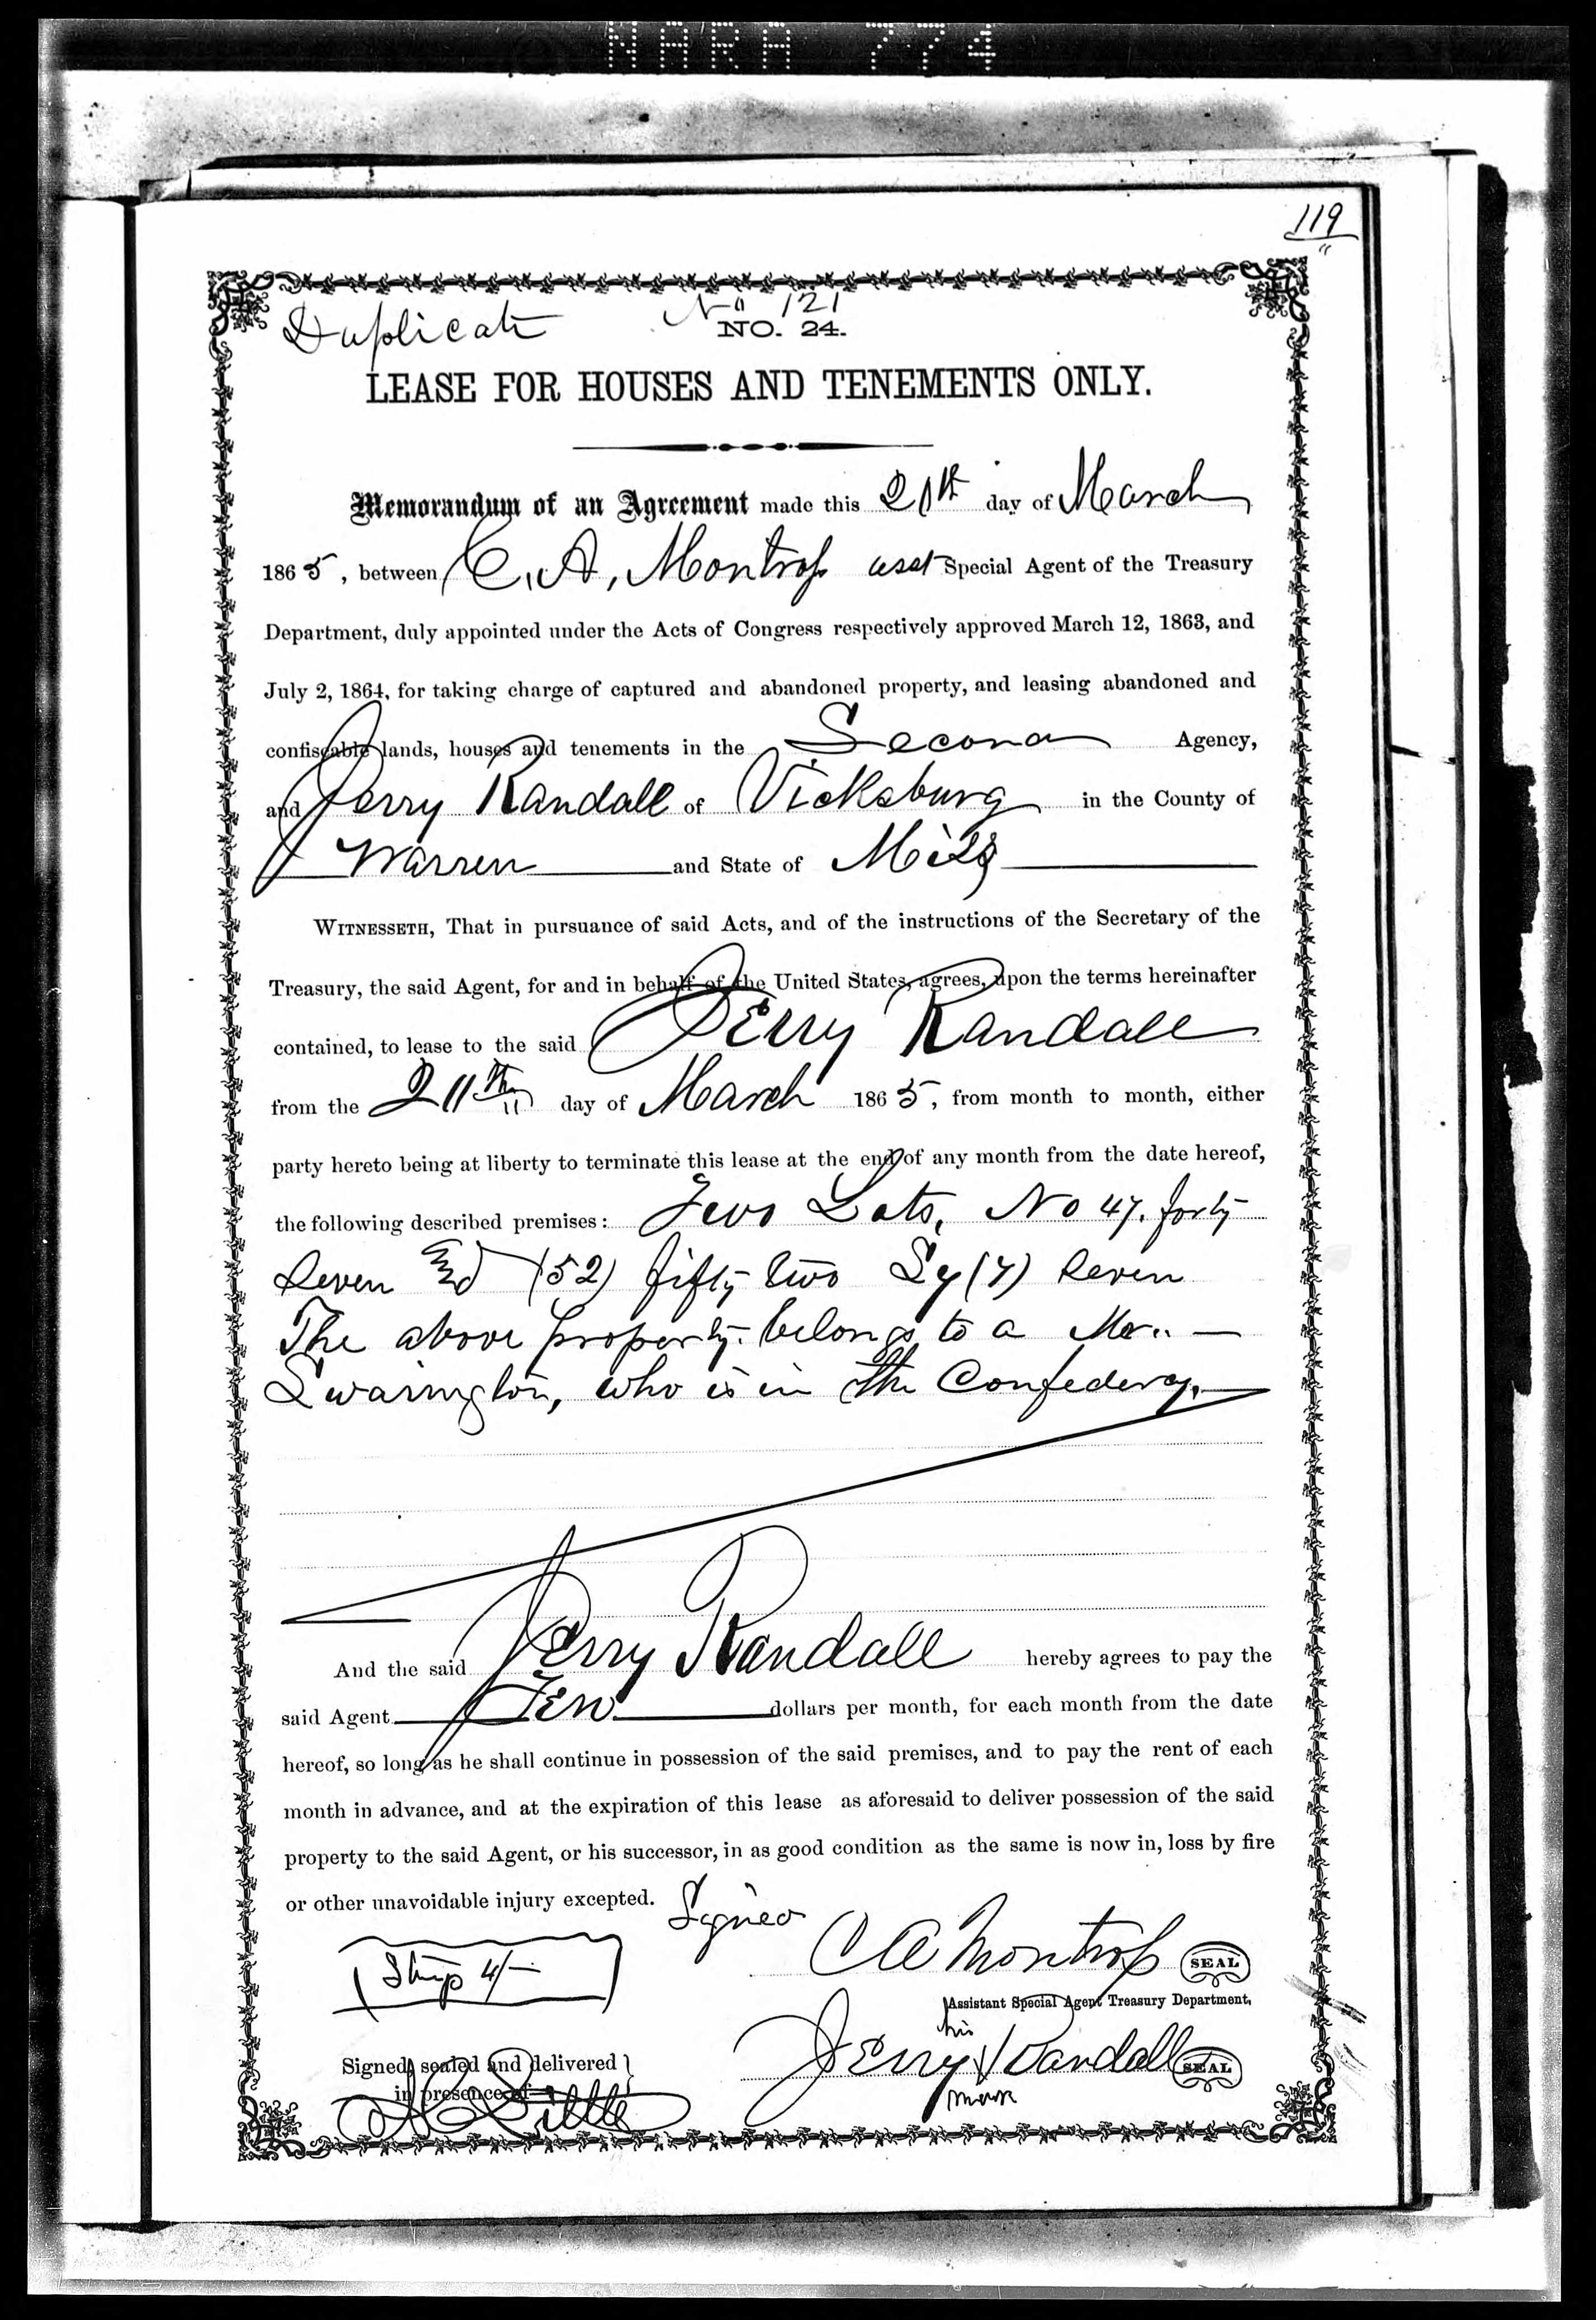 NARA 774
119
Duplicate
No 121
NO. 24.
LEASE FOR HOUSES AND TENEMENTS ONLY.
Memorandum of an Agreement made this day of March
1865, between C. A. Montross asst Special Agent of the Treasury
Department, duly appointed under the Acts of Congress respectively approved March 12, 1863, and
July 2, 1864, for taking charge of captured and abandoned property, and leasing abandoned and
confiscable lands, houses and tenements in the Second Agency,
and Jerry Randall of Vicksburg in the County of
Warren and State of Miss
WITNESSETH, That in pursuance of said Acts, and of the instructions of the Secretary of the
Treasury, the said Agent, for and in behalf of the United States, agrees, upon the terms hereinafter
contained, to lease to the said Jerry Randall
from the day of March 1865, from month to month, either
party hereto being at liberty to terminate this lease at the end of any month from the date hereof,
the following described premises: Two Lots, No 47. forty
Seven and (52) fifty two Sq (7) Seven
The above property belongs to a Mr. —
Swarington, who is in the Confederacy.
And the said Jerry Randall hereby agrees to pay the
said Agent Ten dollars per month, for each month from the date
hereof, so long as he shall continue in possession of the said premises, and to pay the rent of each
month in advance, and at the expiration of this lease as aforesaid to deliver possession of the said
property to the said Agent, or his successor, in as good condition as the same is now in, loss by fire
or other unavoidable injury excepted.
Signed
C A Montross SEAL
Assistant Special Agent Treasury Department,
his
Jerry X Randall SEAL
mark
Signed, sealed and delivered
in presence of